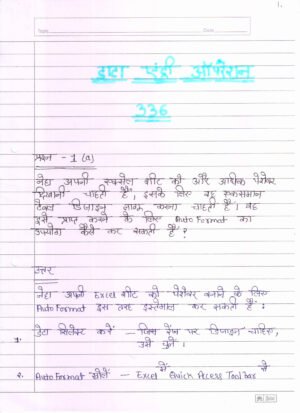 1.
Date
डाटा एंट्री ऑपरेशन
336
प्रश्न - 1 (a)
नेहा अपनी एक्सेल शीट को और अधिक पेशेवर
दिखाना चाहती है, इसके लिए वह एकसमान
टेबल डिजाइन लागू करना चाहती है। वह
इसे प्राप्त करने के लिए Auto Format का
उपयोग कैसे कर सकती है?
उत्तर
नेहा अपनी Excel शीट को पेशेवर बनाने के लिए
Auto Format इस तरह इस्तेमाल कर सकती है:
1. डेटा सिलेक्ट करें - जिस रेंज पर डिजाइन चाहिए,
उसे चुनें।
2. Auto Format खोलें - Excel में Quick Access Toolbar से